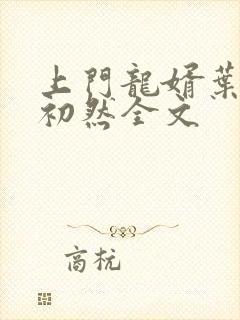 上門龍婿葉
初然全文
商杬